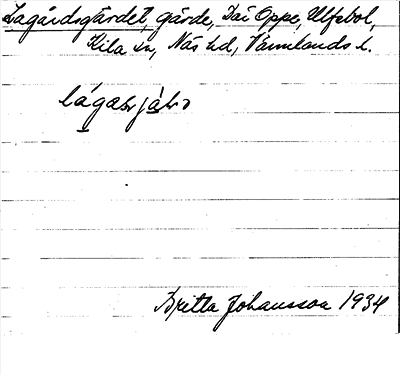 Lagårdsgärdet, gärde, Dai Oppe, Ulfsbol,
Kila sn, Näs hd, Värmlands l.
Britta Johansson 1934